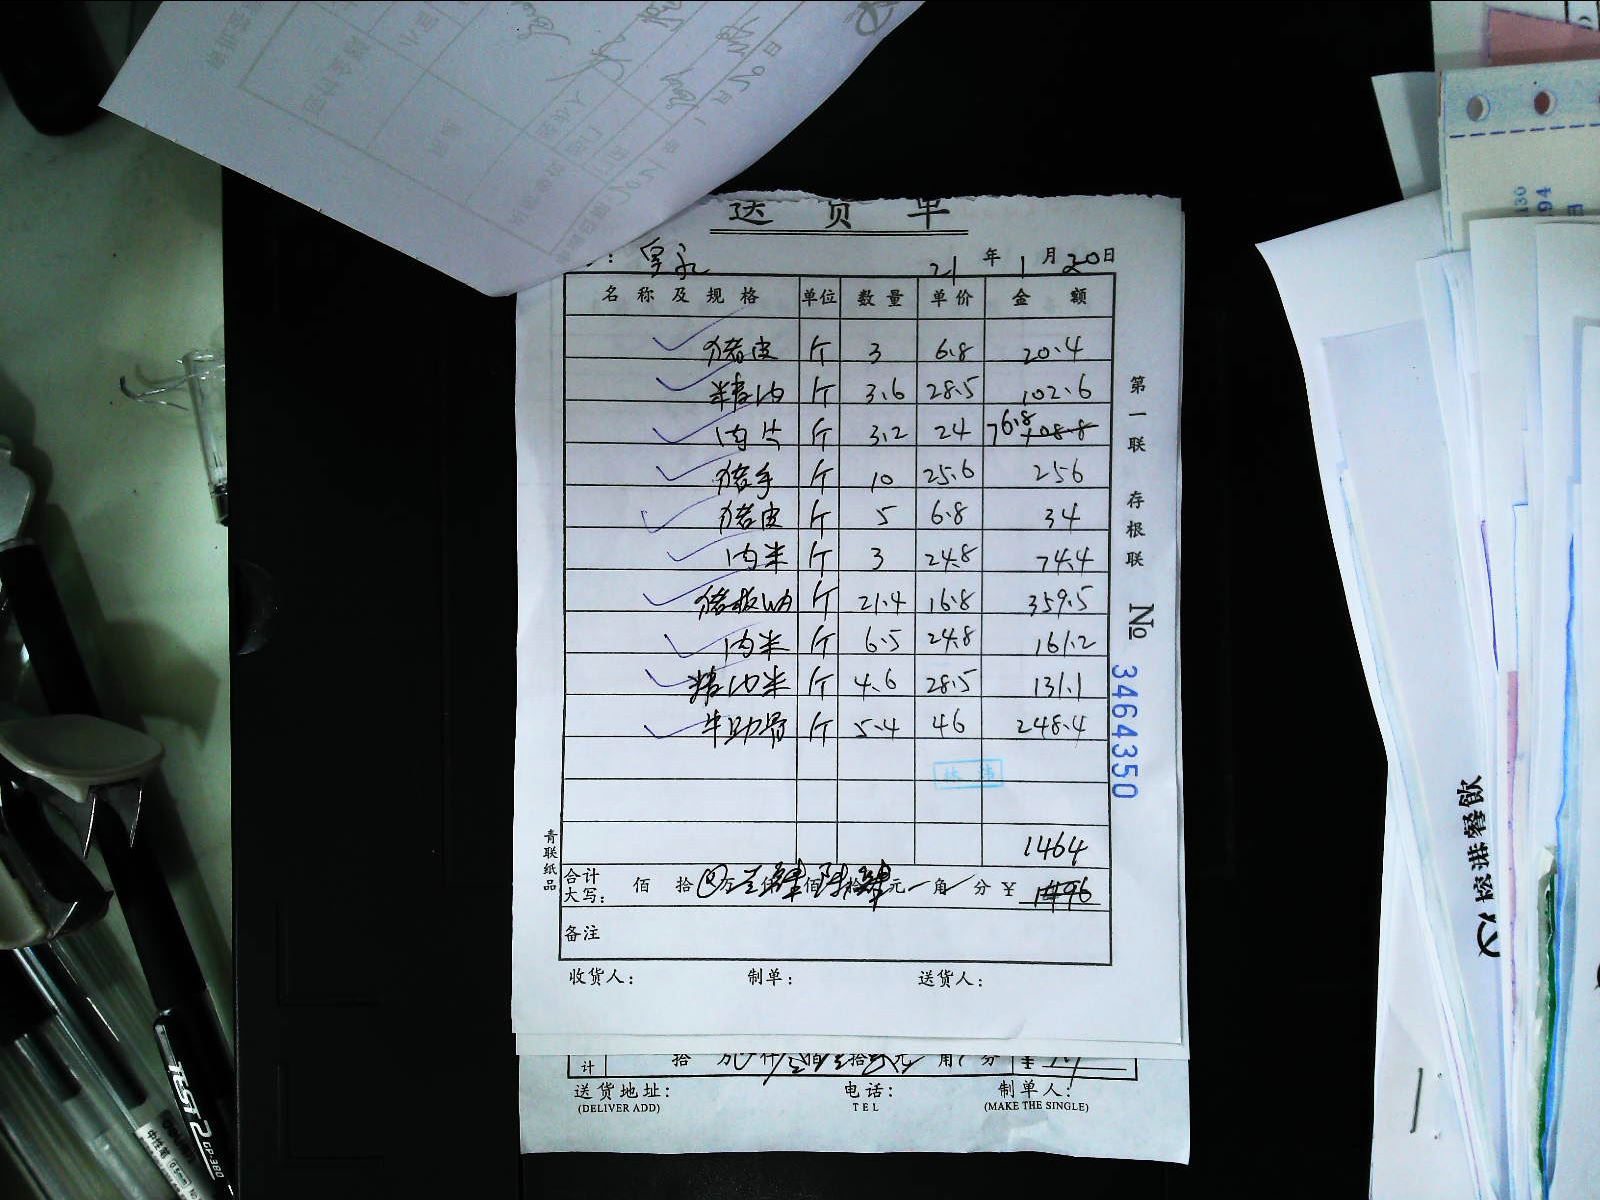 送货单
皇永
21年1月20日
名称及规格 单位 数量 单价 金额
猪皮 斤 3 6.8 20.4
精肉 斤 3.6 28.5 102.6
肉片 斤 3.2 24 76.8 108.8
猪手 斤 10 25.6 256
猪皮 斤 5 6.8 34
肉米 斤 3 24.8 74.4
猪板肉 斤 21.4 16.8 359.5
肉米 斤 6.5 24.8 161.2
精肉米 斤 4.6 28.5 131.1
牛肋骨 斤 5.4 46 248.4
1464
合计大写: 佰 拾 万 仟 佰 拾 元 角 分 ¥ 1496
备注
收货人: 制单: 送货人:
第一联 存根联 № 3464350
青联纸品
计 拾 万 仟 佰 拾 元 角 分 ¥
送货地址: 电话: 制单人:
(DELIVER ADD) TEL (MAKE THE SINGLE)
TEST 2 GP-380
中性笔
130
94
餐飲